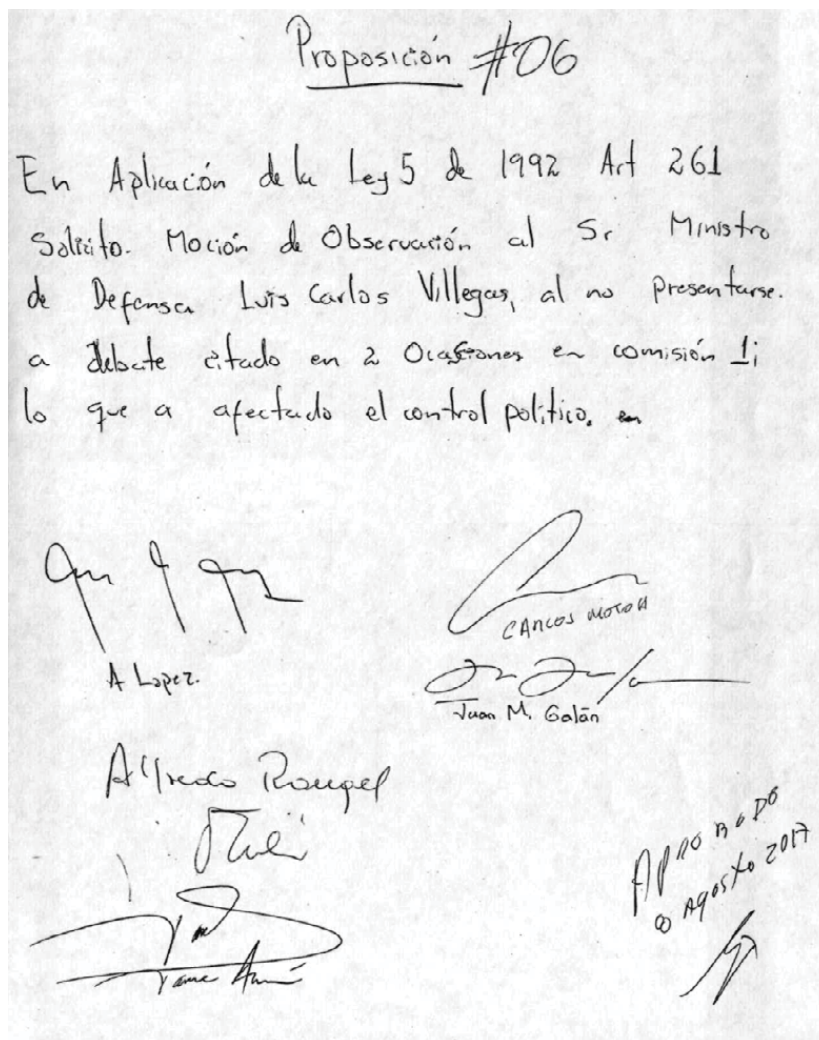 Proposición #06
En Aplicación de la Ley 5 de 1992 Art 261
Solicito. Moción de Observación al Sr Ministro
de Defensa Luis Carlos Villegas, al no presentarse.
a debate citado en 2 Ocasiones en comisión 1;
lo que a afectado el control político. en
CARLOS MOTOA
A Lopez.
Juan M. Galán
Alfredo Rangel
APROBADO
8 Agosto 2017